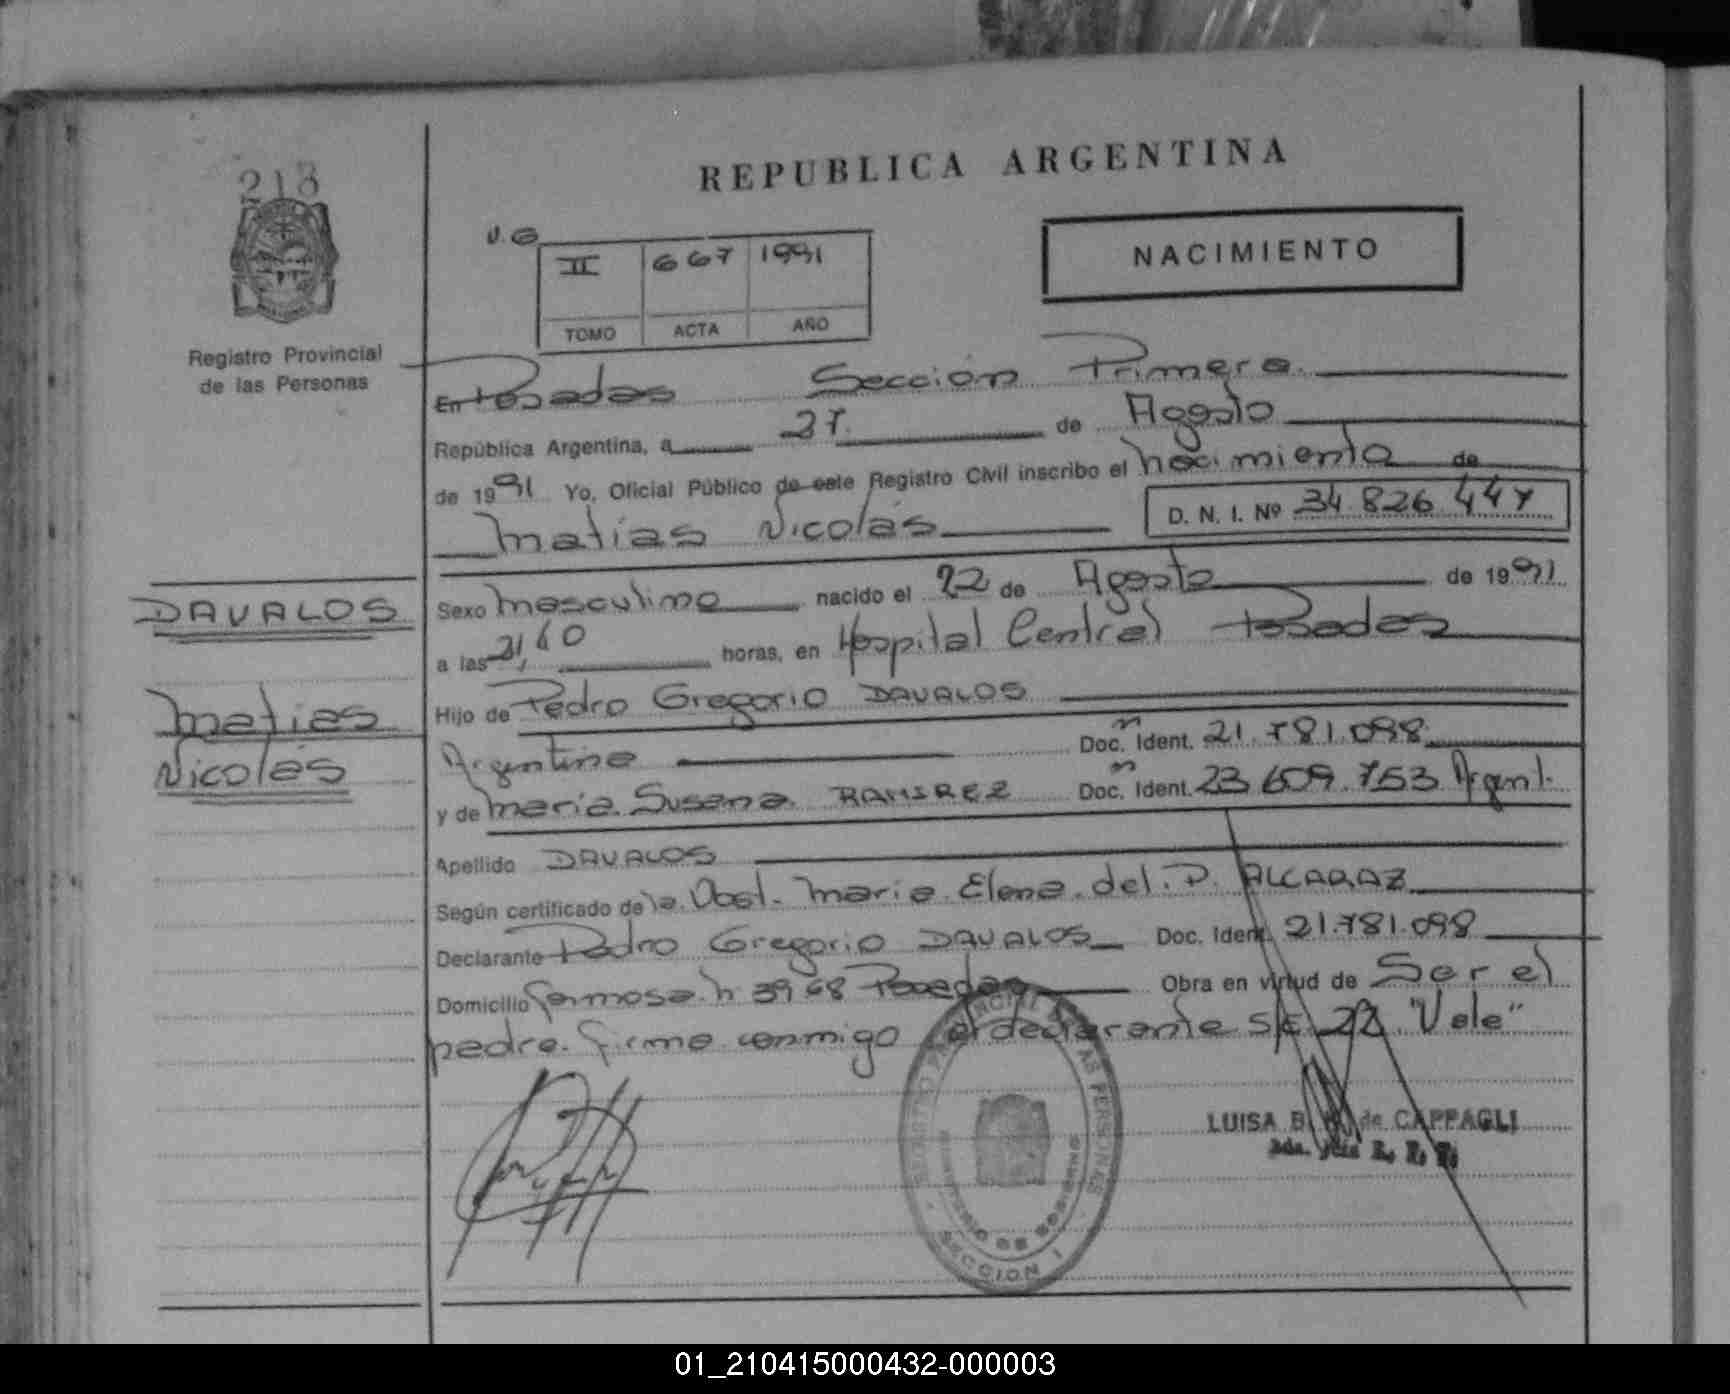 213
REPUBLICA ARGENTINA
V.G
II 667 1991
TOMO ACTA AÑO
NACIMIENTO
Registro Provincial
de las Personas
En Posadas Sección Primera
República Argentina, a 27 de Agosto
de 1991 Yo, Oficial Público de este Registro Civil inscribo el nacimiento de
Matías Nicolás D. N. I. Nº 34.826.447
DAVALOS
Matías
Nicolás
Sexo masculino nacido el 22 de Agosto de 1991
a las 21,40 horas, en Hospital Central Posadas
Hijo de Pedro Gregorio DAVALOS
Argentino Doc. Ident. 21.781.098
y de María Susana RAMIREZ Doc. Ident. 23.609.753 Argent.
Apellido DAVALOS
Según certificado de la Obst. María Elena del P. ALCARAZ
Declarante Pedro Gregorio DAVALOS Doc. Ident. 21.781.098
Domicilio formosa n 3968 Posadas Obra en virtud de Ser el
padre. firma conmigo el declarante S/E 22 "Vale"
LUISA B. de CAPPAGLI
REGISTRO PROVINCIAL DE LAS PERSONAS
MINISTERIO DE GOBIERNO
SECCION I
01_210415000432-000003